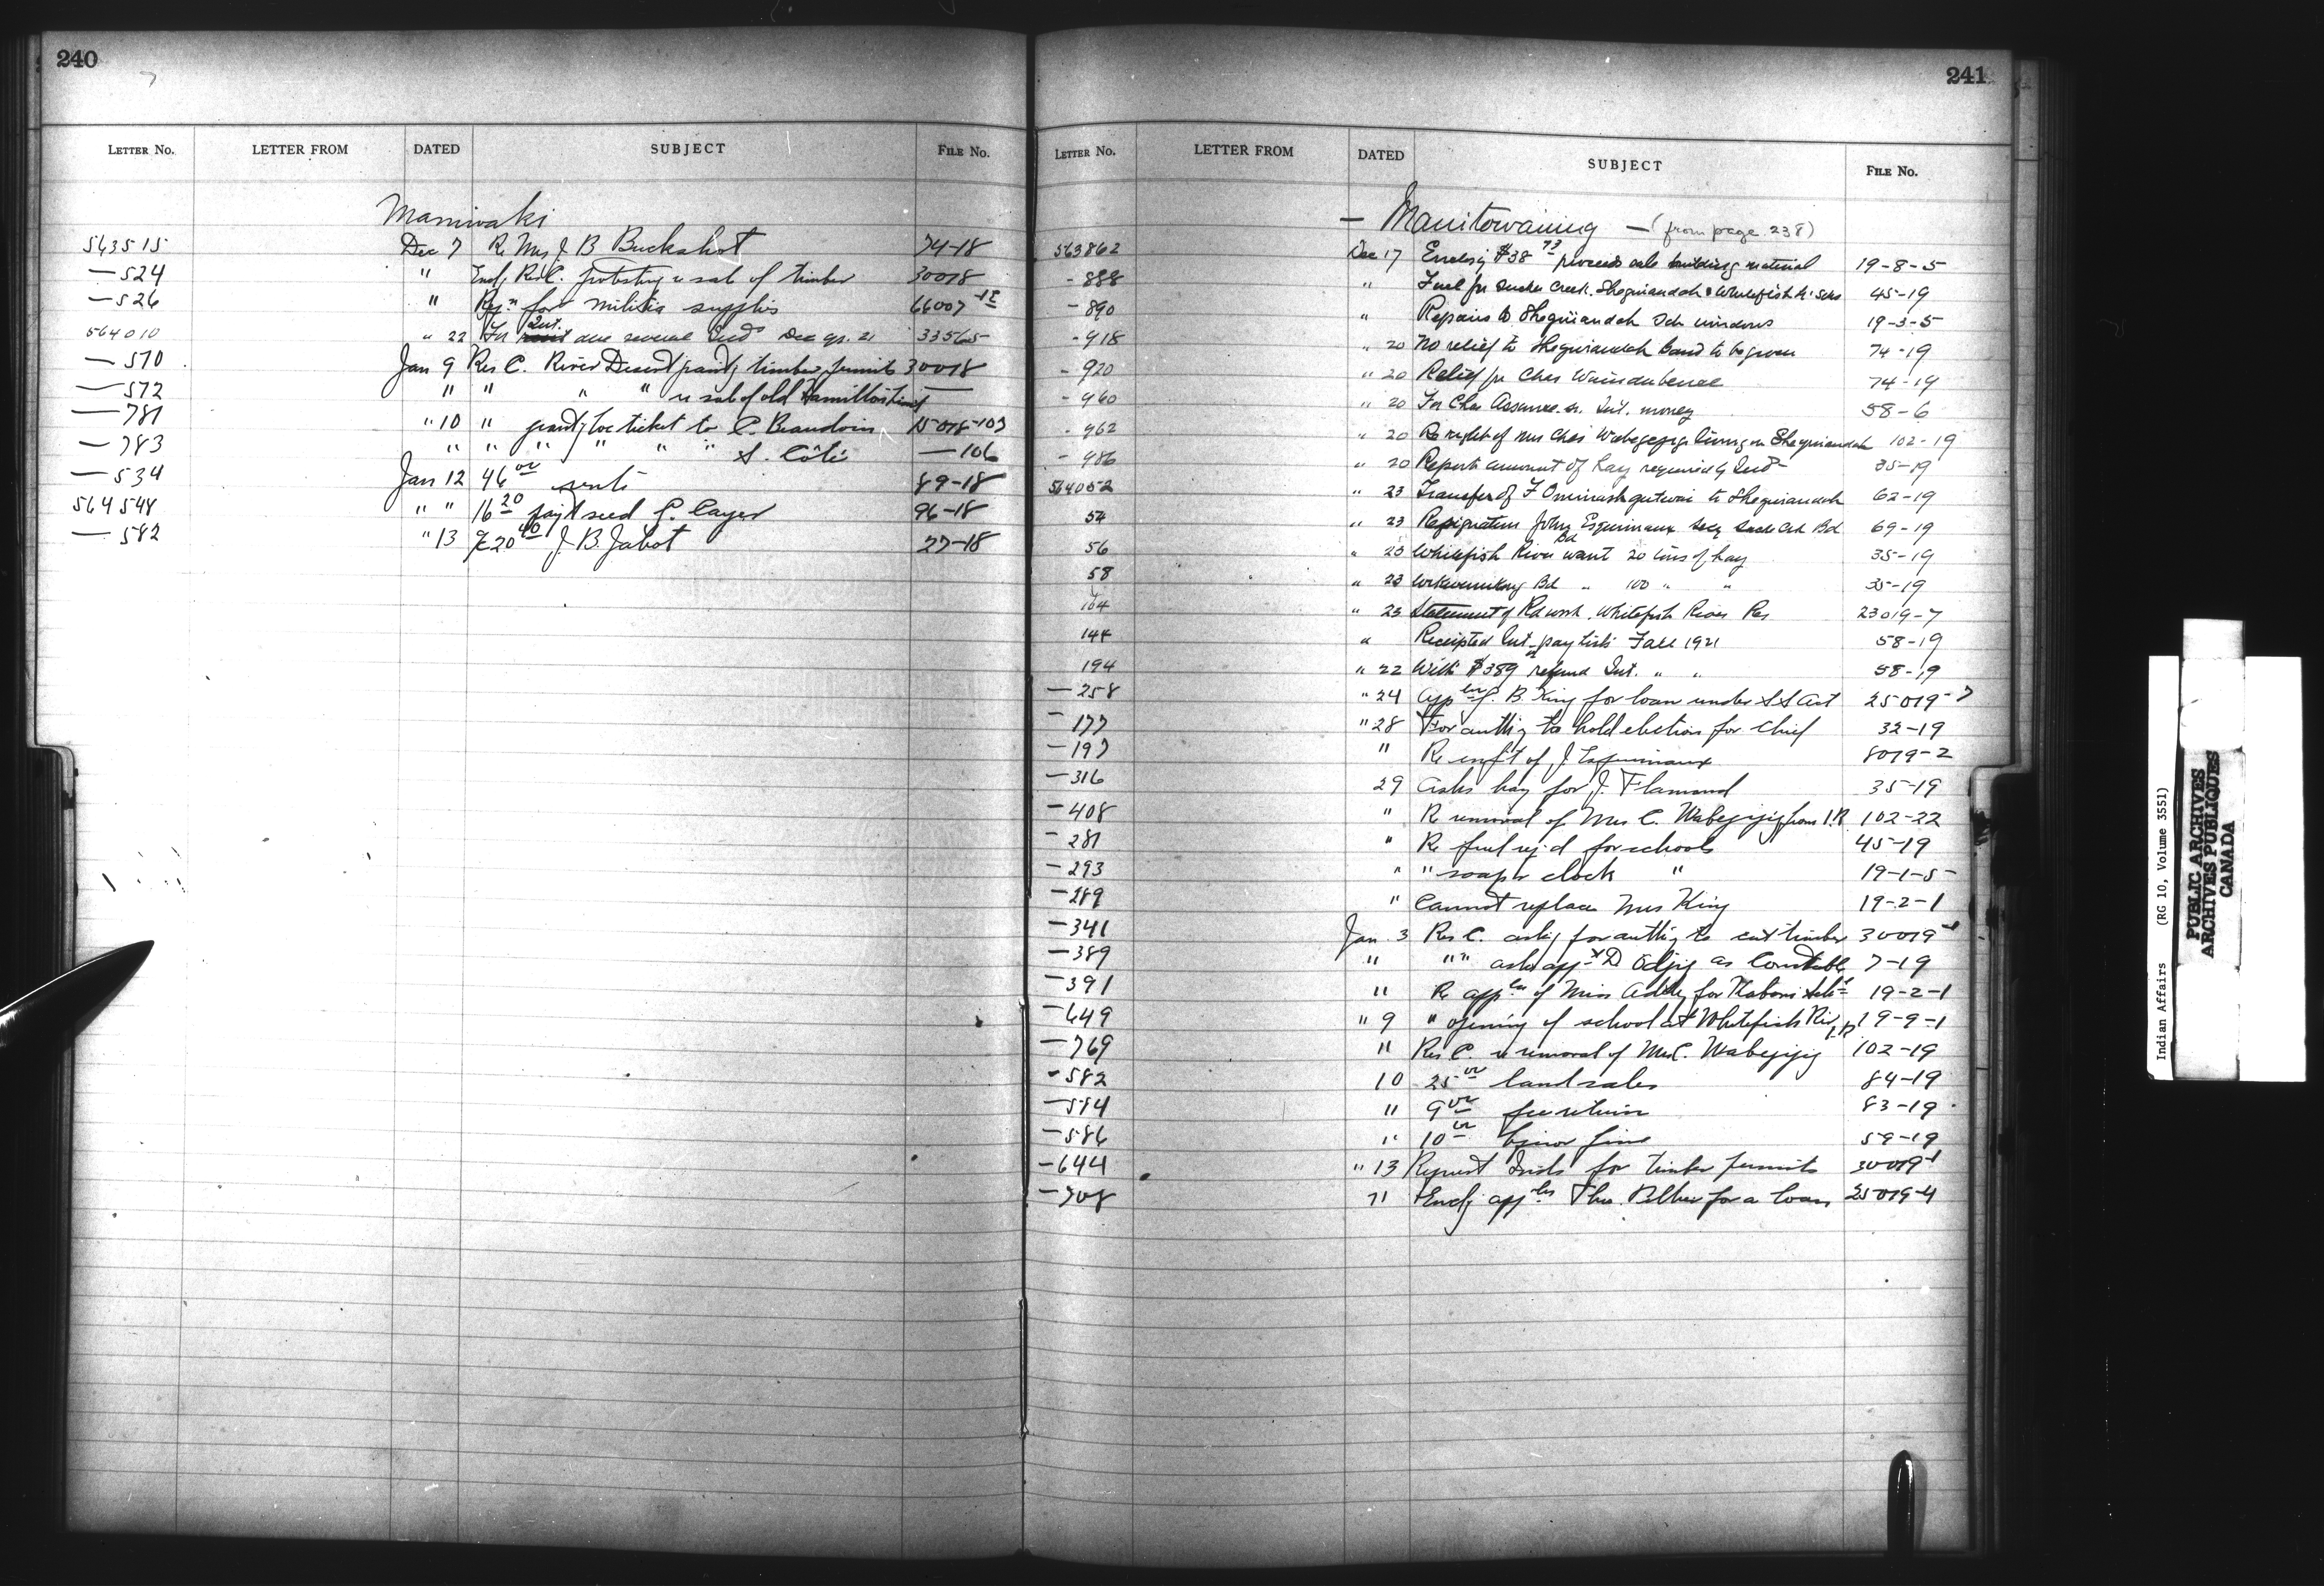 240
LETTER No. LETTER FROM DATED SUBJECT FILE No.
Maniwaki
563515 Dec 7 Re Mrs J B Buckshot 74-18
—524 " Encl Res C. protesting re sale of timber 30018
—526 " Reqn for militia supplies 66007-18
564010 " 22 For Int. due several Inds Dec qr. 21 33565
—570 Jan 9 Res C. River Desert grantg timber permits 30018
—572 " " " " re sale of old Hamilton —
—781 " 10 " grantg loc ticket to C. Beaudoin 15018-107
—783 " " " " " " S. Côté —106
—534 Jan 12 46 00 rents 89-18
564548 " " 16 20 seed P. Cayer 96-18
—582 " 13 20 40 J. B. Jabot 27-18
241
LETTER No. LETTER FROM DATED SUBJECT FILE No.
— Manitowaning — (from page 238)
563862 Dec 17 Enclosig $38 73 proceeds sale building material 19-8-5
-888 " Fuel for Sucker Creek. Sheguiandah & Whitefish R. Schs 45-19
-890 " Repairs to Sheguiandah Sch windows 19-3-5
-918 " 20 No relief to Sheguiandah band to be given 74-19
-920 " 20 Relief for Chas 74-19
-960 " 20 For Chas Int. money 58-6
-962 " 20 Re right of Mrs Chas Wabegijig living on Sheguiandah 102-19
-986 " 20 Report amount of hay required by Inds 35-19
564052 " 23 Transfer of F to Sheguiandah 62-19
54 " 23 Resignation John Esquimaux Secy Suck Crk Bd 69-19
56 " 23 Whitefish River Bd want 20 tons of hay 35-19
58 " 23 Bd " 100 " " 35-19
104 " 23 Statement of Rd work. Whitefish River Res 23019-7
144 " Receipted Int. pay lists Fall 1921 58-19
194 " 22 With $389 refund Int. " " 58-19
—258 " 24 Appln J. B King for loan under S S Act 25019-7
—177 " 28 For authy to hold election for Chief 32-19
—197 " Re enft of J Esquimaux 8019-2
—316 29 Asks hay for J. Flamand 35-19
—408 " Re removal of Mrs C. Wabegijig from I.R. 102-22
—281 " Re fuel reqd for schools 45-19
—293 " " soap & clock " 19-1-5
—289 " Cannot replace Mrs King 19-2-1
—341 Jan 3 Res C. askg for authy to cut timber 30019-1
—389 " " " askg appt D Odjig as Constable 7-19
—391 " Re appln of Miss for 19-2-1
—649 " 9 " opening of school at Whitefish Riv I.R. 19-9-1
—769 " Res C. re removal of Mrs C. Wabegijig 102-19
-582 10 25 00 land sales 84-19
—584 " 9 00 fee return 83-19
—586 " 10 00 liquor fine 59-19
—644 " 13 Request Inds for timber permits 30019-1
—708 " Encl appln Thos. for a loan 25019-4
Indian Affairs (RG 10, Volume 3551)
PUBLIC ARCHIVES
ARCHIVES PUBLIQUES
CANADA